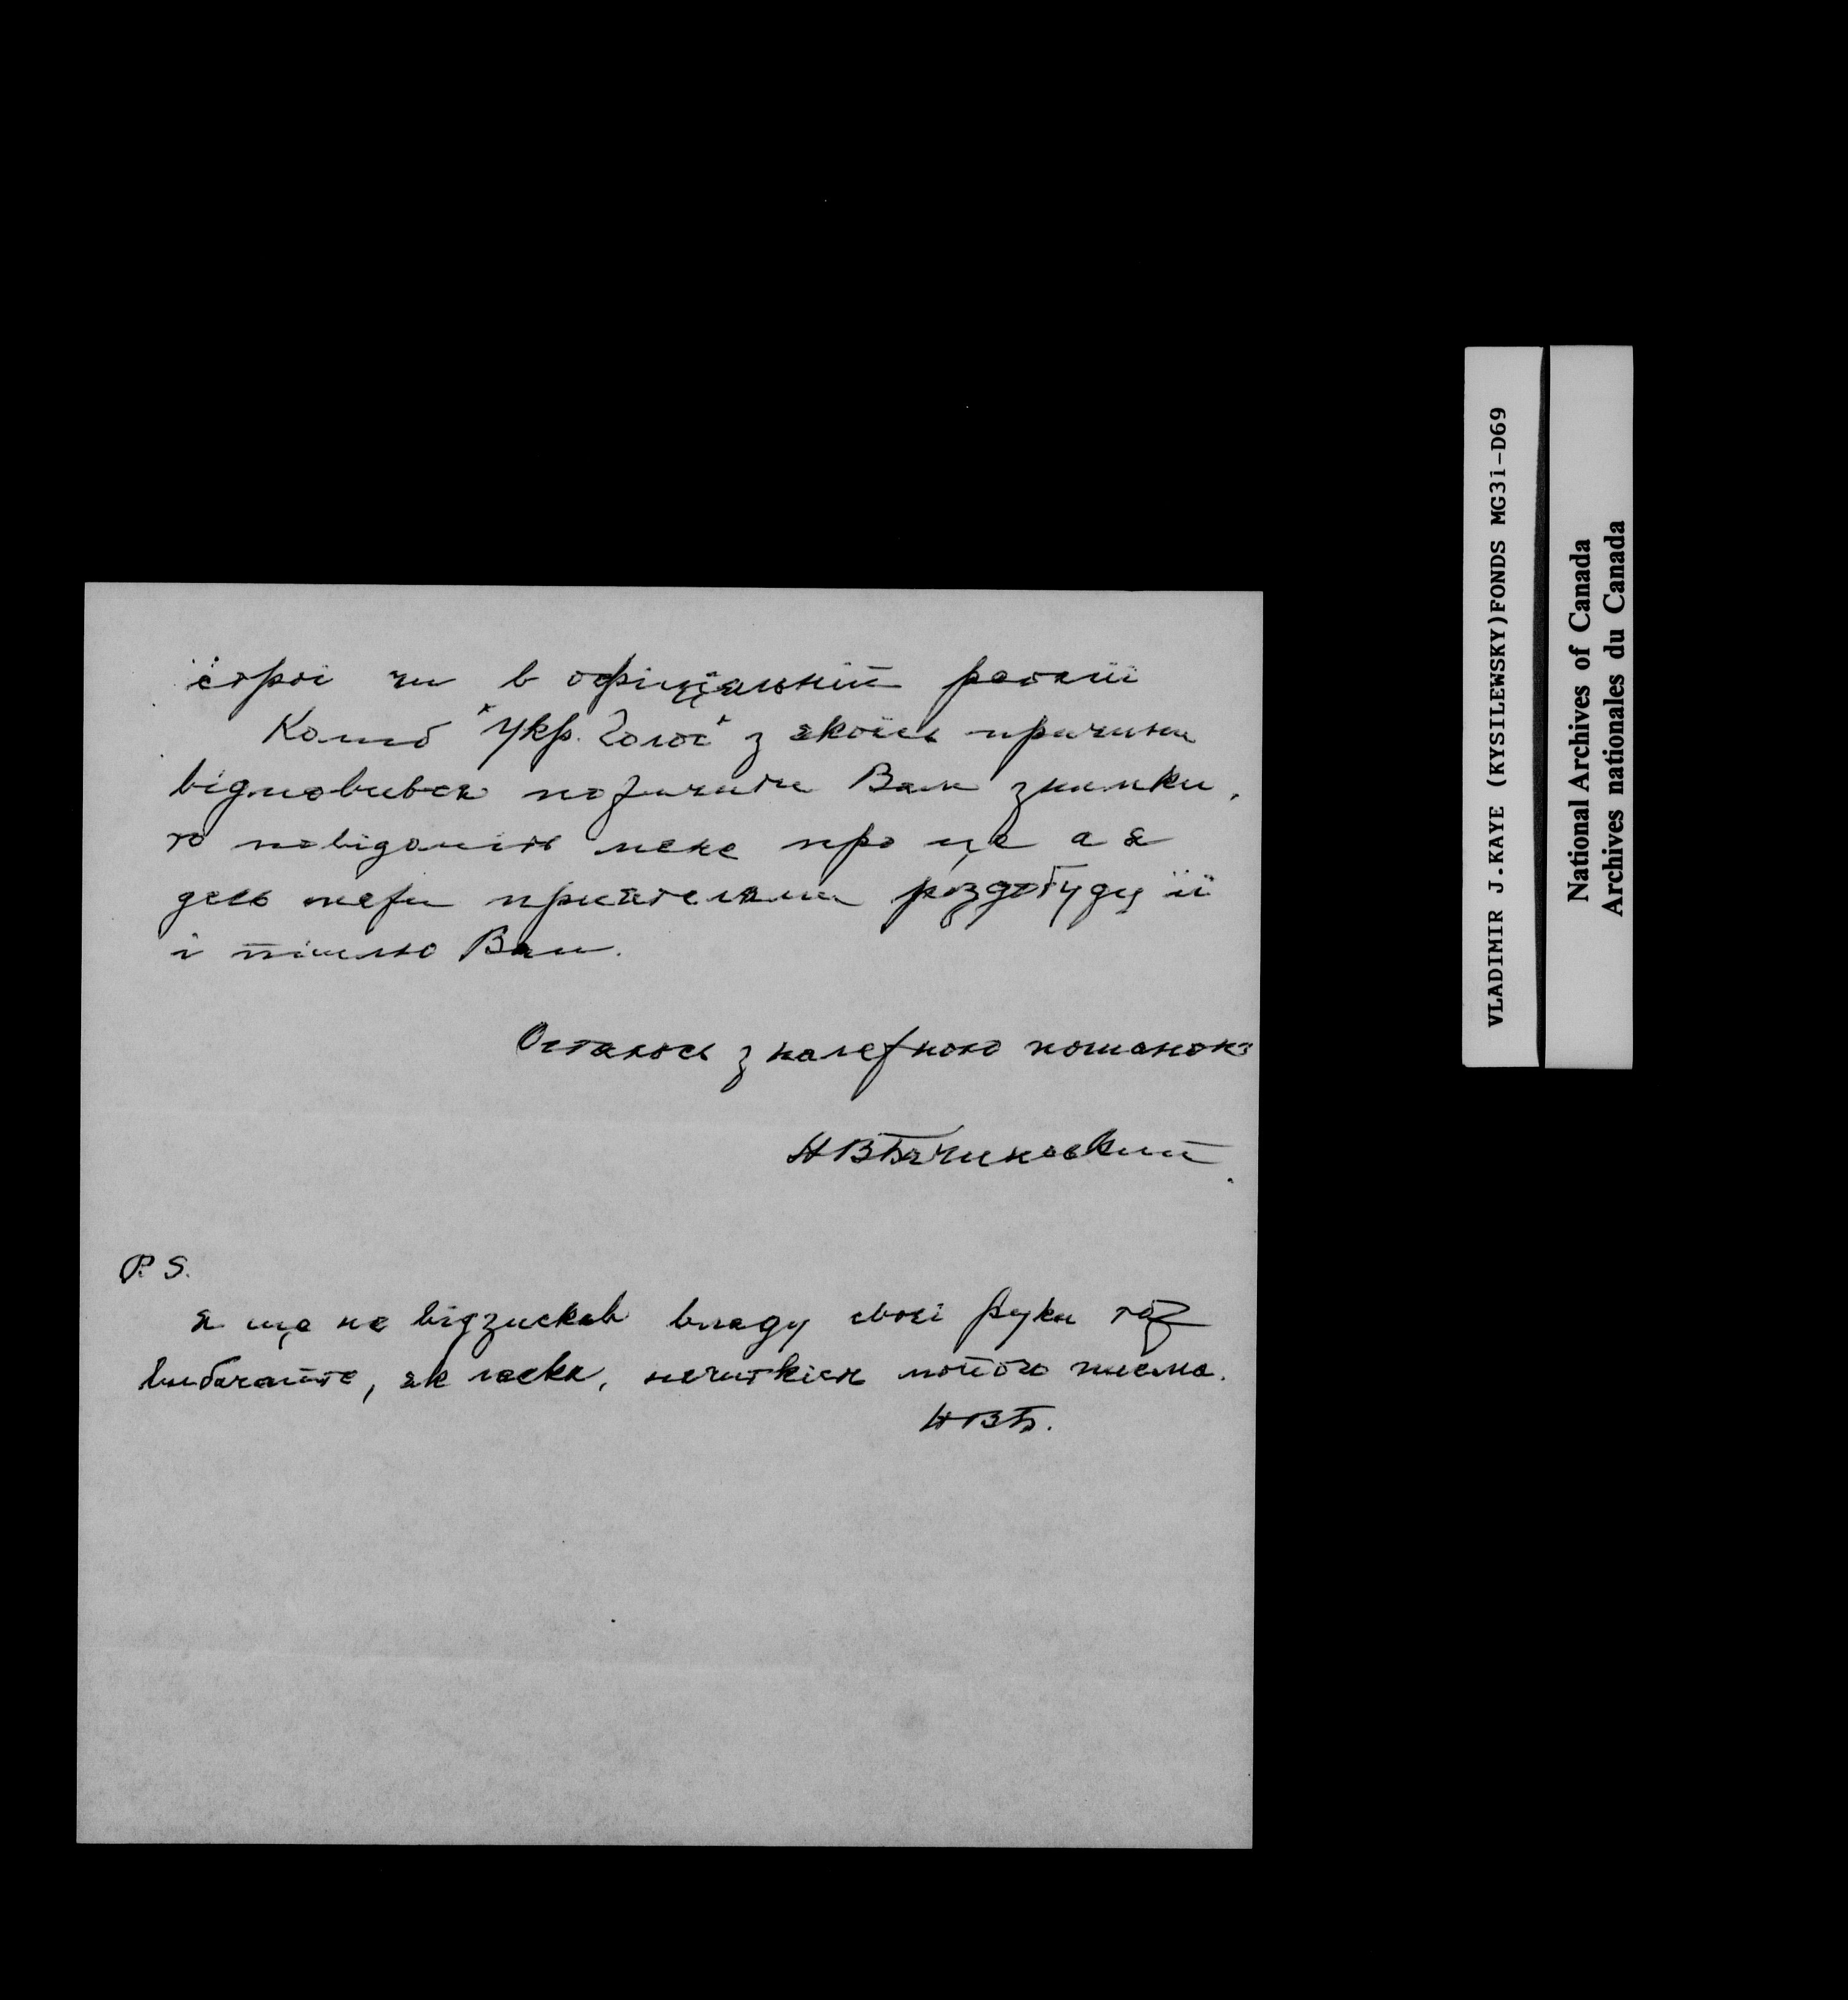 історії чи в офіціяльній реляції
Колиб "Укр. Голос" з якоїсь причини
відмовився позичити Вам знимки,
то повідоміть мене про це а я
десь межи приятелями роздобуду її
і пішлю Вам.
Остаюсь з належною пошаною
НВБачинський
P.S.
Я ще не відзискав владу своєї руки то
вибачайте, як ласка, нечіткість мойого письма.
НВБ.
VLADIMIR J.KAYE (KYSILEWSKY)FONDS MG31-D69
National Archives of Canada
Archives nationales du Canada